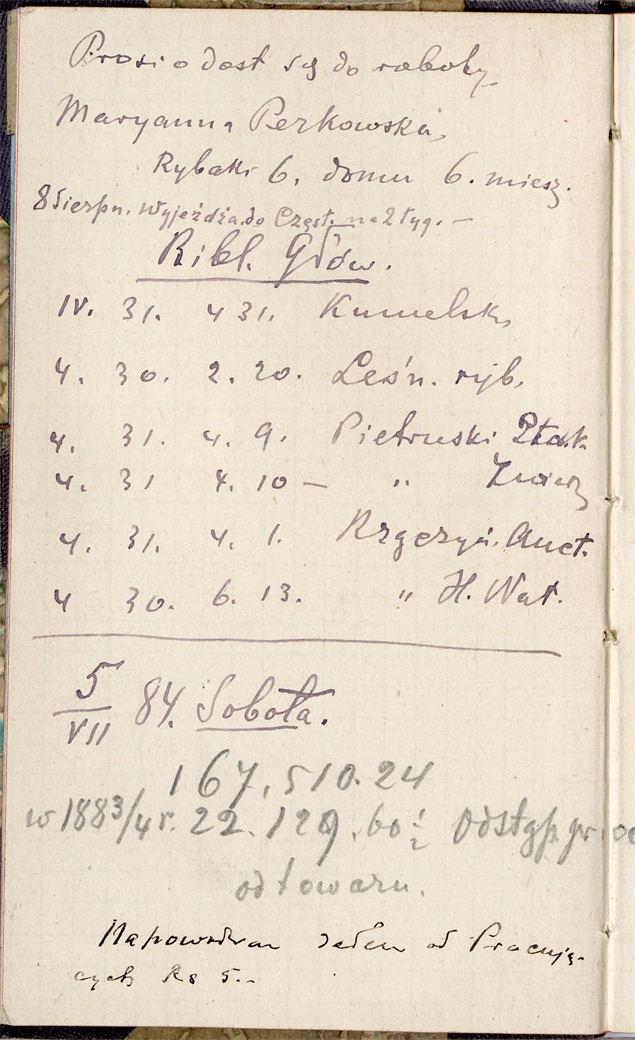 Prosi o dost się do roboty
Maryanna Perkowska,
Rybaki 6. domu 6. miesz.
8 Sierpn. Wyjeżdża do Częst. na 2 tyg. —
Bibl. Głów.
IV. 31. 4 31. Kumelsk,
4. 30. 2. 20. Leśn. ryb.
4. 31. 4. 9. Pietruski Ptak.
4. 31 4. 10 — „ Zwierz
4. 31. 4. 1. Rzączyń. Auct.
4 30. 6. 13. „ H. Nat.
5/VII 84. Sobota.
167,510.24
w 1883/4 r. 22.129.60 1/2 Odstęp. pr
od towaru.
Na powodzian jeden od Pracują-
cych Rs 5.-